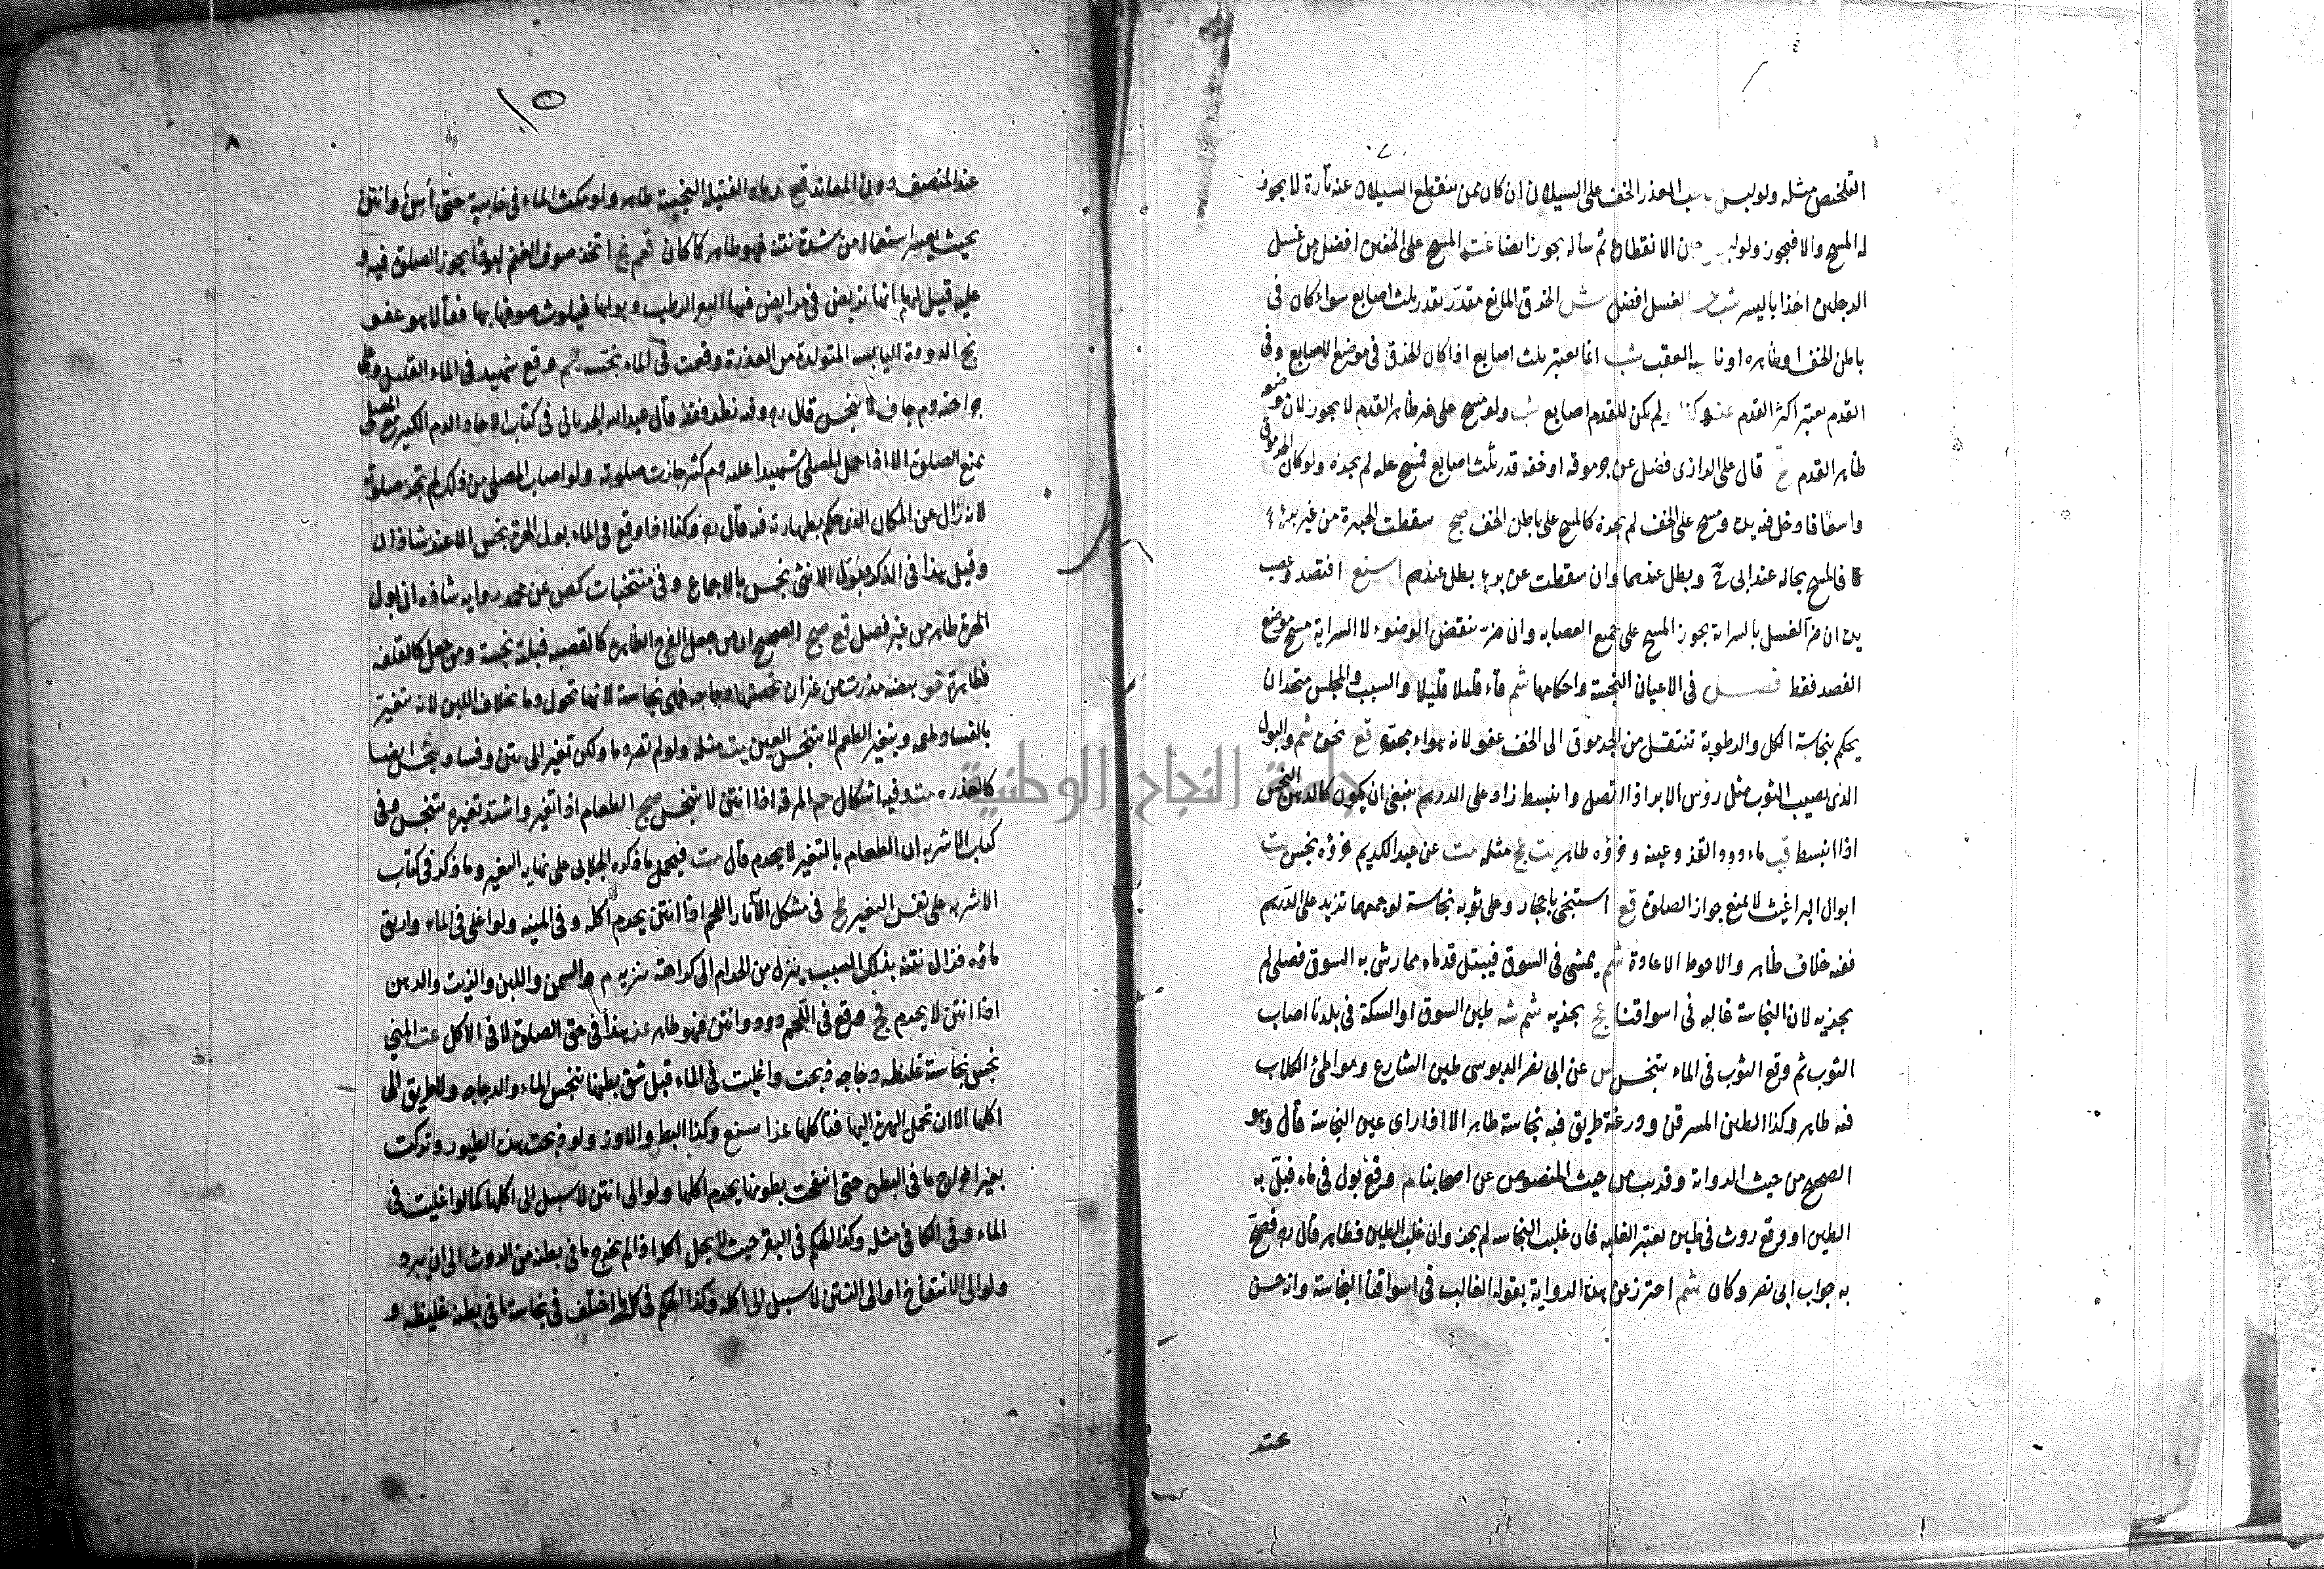 التلخيص مثله ولو لبس صاحب العذر الخف على السيلان ان كان ممن ينقطع السيلان عنه تارة لا يجوز
له المسح والا فيجوز الانقطاع ثم سال يجوز ايضا المسح على الخفين افضل من غسل
الرجلين اخذا باليسر الغسل افضل الخرق المانع مقدر بقدر ثلث اصابع سواء كان في
باطن الخف او ظاهره او ناحية العقب انما يعتبر ثلث اصابع اذا كان الخرق في موضع الاصابع وفي
القدم يعتبر اكثر القدم ولم يكن للقدم اصابع ولو مسح على غير ظاهر القدم لا يجوز لان موضعه
ظاهر القدم قال على الرازى فضل عن جرموقه او خفه قدر ثلث اصابع فمسح عليه لم يجزه ولو كان الجرموق
واسعا فادخل فيه يده ومسح على الخف لم يجزه كالمسح على باطن الخف صح سقطت الجبيرة من غير برء
فالمسح بحاله عند ابى ح وبطل عندهما وان سقطت عن برء بطل عندهم افتصد وعصب
يده ان ضر الغسل بالسراية يجوز المسح على جميع العصابه وان ينقض الوضوء لا السراية مسح موضع
الفصد فقط فصل في الاعيان النجسة واحكامها شم قاء قليلا قليلا والسبب والمجلس متحدان
يحكم بنجاسة الكل والرطوبة تنتقل من الجرموق الى الخف عفو لانه قع شم والبول
الذى يصيب الثوب مثل رؤس الابر اذا اتصل وانبسط زاد على الدرهم ينبغى ان يكون كالدهن النجس
اذا انبسط قب ماء دود القز وعينه وخرؤه طاهر مثله مت عن عبد الكريم خرؤه نجس
ابوال البراغيث لا يمنع جواز الصلوة قع استنجى باحجار وعلى ثوبه نجاسة لو جمعهما تزيد على الدرهم
ففيه خلاف ظاهر والاحوط الاعادة شم يمشى في السوق فيبتل قدماه مما رش به السوق فصلى لم
يجزيه لان النجاسة غالبه فى اسواقنا يجزيه شم طين السوق او السكة فى بلدنا اصاب
الثوب ثم وقع الثوب في الماء يتنجس عن ابى نصر الدبوسى طين الشارع ومواطئ الكلاب
فيه طاهر وكذا الطين المسرقن وردغة طريق فيه نجاسة طاهر الا اذا راى عين النجاسة قال وهو
الصحيح من حيث الرواية وقريب من حيث المنصوص عن اصحابنا وقع بول في ماء فبل به
الطين او وقع روث في طين يعتبر الغلبه فان غلبت النجاسه لم يجز وان غلب الطين فطاهر قال
به جواب ابى نصر وكان شم احترز عن هذه الرواية بقوله الغالب في اسواقنا النجاسة وانه حسن
عند
١٥
٨
عند المنصف دون المعاند قع رماد الفتيلة النجسة طاهر ولو مكث الماء في خابية حتى أسن وانتن
بحيث يعسر استعماله من شدة نتنه فهو طاهر كما كان اتخذ صوف الغنم لبودا يجوز الصلوة فيه و
عليه قيل لهما انها تربض في مرابض فيها البعر الرطب وبولها فيلوث صوفها بها فقالا هو عفو
الدودة اليابسه المتولدة من العذرة وقعت في الماء نجسته وقع شهيد في الماء القليل
جراحته دم جاف لا ينجس قال وفيه نظر فقد قال عبد الله الجرجانى في كتاب الاحاد الدم الكثير
يمنع الصلوة الا اذا حمل المصلى شهيدا عليه دم كثير جازت صلوته ولو اصاب المصلى من ذلك لم تجز صلوته
لانه زال عن المكان الذى حكم بطهارته فيه قال وكذا اذا وقع في الماء بول الهرة نجس الا عند شاذان
وقيل هذا في الذكر فبول الانثى نجس بالاجماع وفي منتخبات عن محمد رواية شاذة ان بول
الهرة طاهر من غير فصل قع صح الصحيح ان من جعل الفرج الظاهر كالقصبه فبلته نجسة ومن جعل كالقلفه
فطاهرة بيضه مذرت من دجاجه فهى نجاسة لانها تحول دما بخلاف اللبن لانه يتغير
بالفساد طعمه وبتغير الطعم لا يتنجس العين مثله ولو لم تصر دما ولكن تغير الى نتن وفساد ينجس ايضا
كالعذره وفيه اشكال المرقة اذا انتن لا ينجس الطعام اذا تغير واشتد تغيره يتنجس وفي
كتاب الاشربه ان الطعام بالتغير لا يحرم قال مت فيحمل ما ذكره الجلابى على نهاية التغير وما ذكر في كتاب
الاشربه على نفس التغير في مشكل الآثار اللحم اذا انتن يحرم اكله ولو اغلى في الماء واريق
ماؤه فزال نتنه بذلك السبب ينزل من الحرام الى كراهة تنزيه والسمن واللبن والزيت والدهن
اذا انتن لا يحرم وقع في اللحم دود وانتن فهو طاهر هذا في حق الصلوة لا في الاكل المنى
نجس نجاسة غليظه دجاجه ذبحت واغليت في الماء قبل شق بطنها تنجس الماء والدجاجه ولا طريق الى
اكلها الا ان تحمل الهرة اليها فتاكلها وكذا البط والاوز ولو ذبحت هذه الطيور وتركت
بغير اخراج ما فى البطن حتى انتفخت بطونها يحرم اكلها ولو الى انتن لا سبيل الى اكلها كما لو اغليت في
الماء وفي الكافى مثله وكذا الحكم في البقر حيث لا يحل اكله اذا لم يخرج ما فى بطنه من الروث الى ان يبرد
ولو الى الانتفاخ او الى النتن لا سبيل الى اكله وكذا الحكم في كل ما اختلف في نجاسة ما فى بطنه غليظه و
جامعة النجاح الوطنية